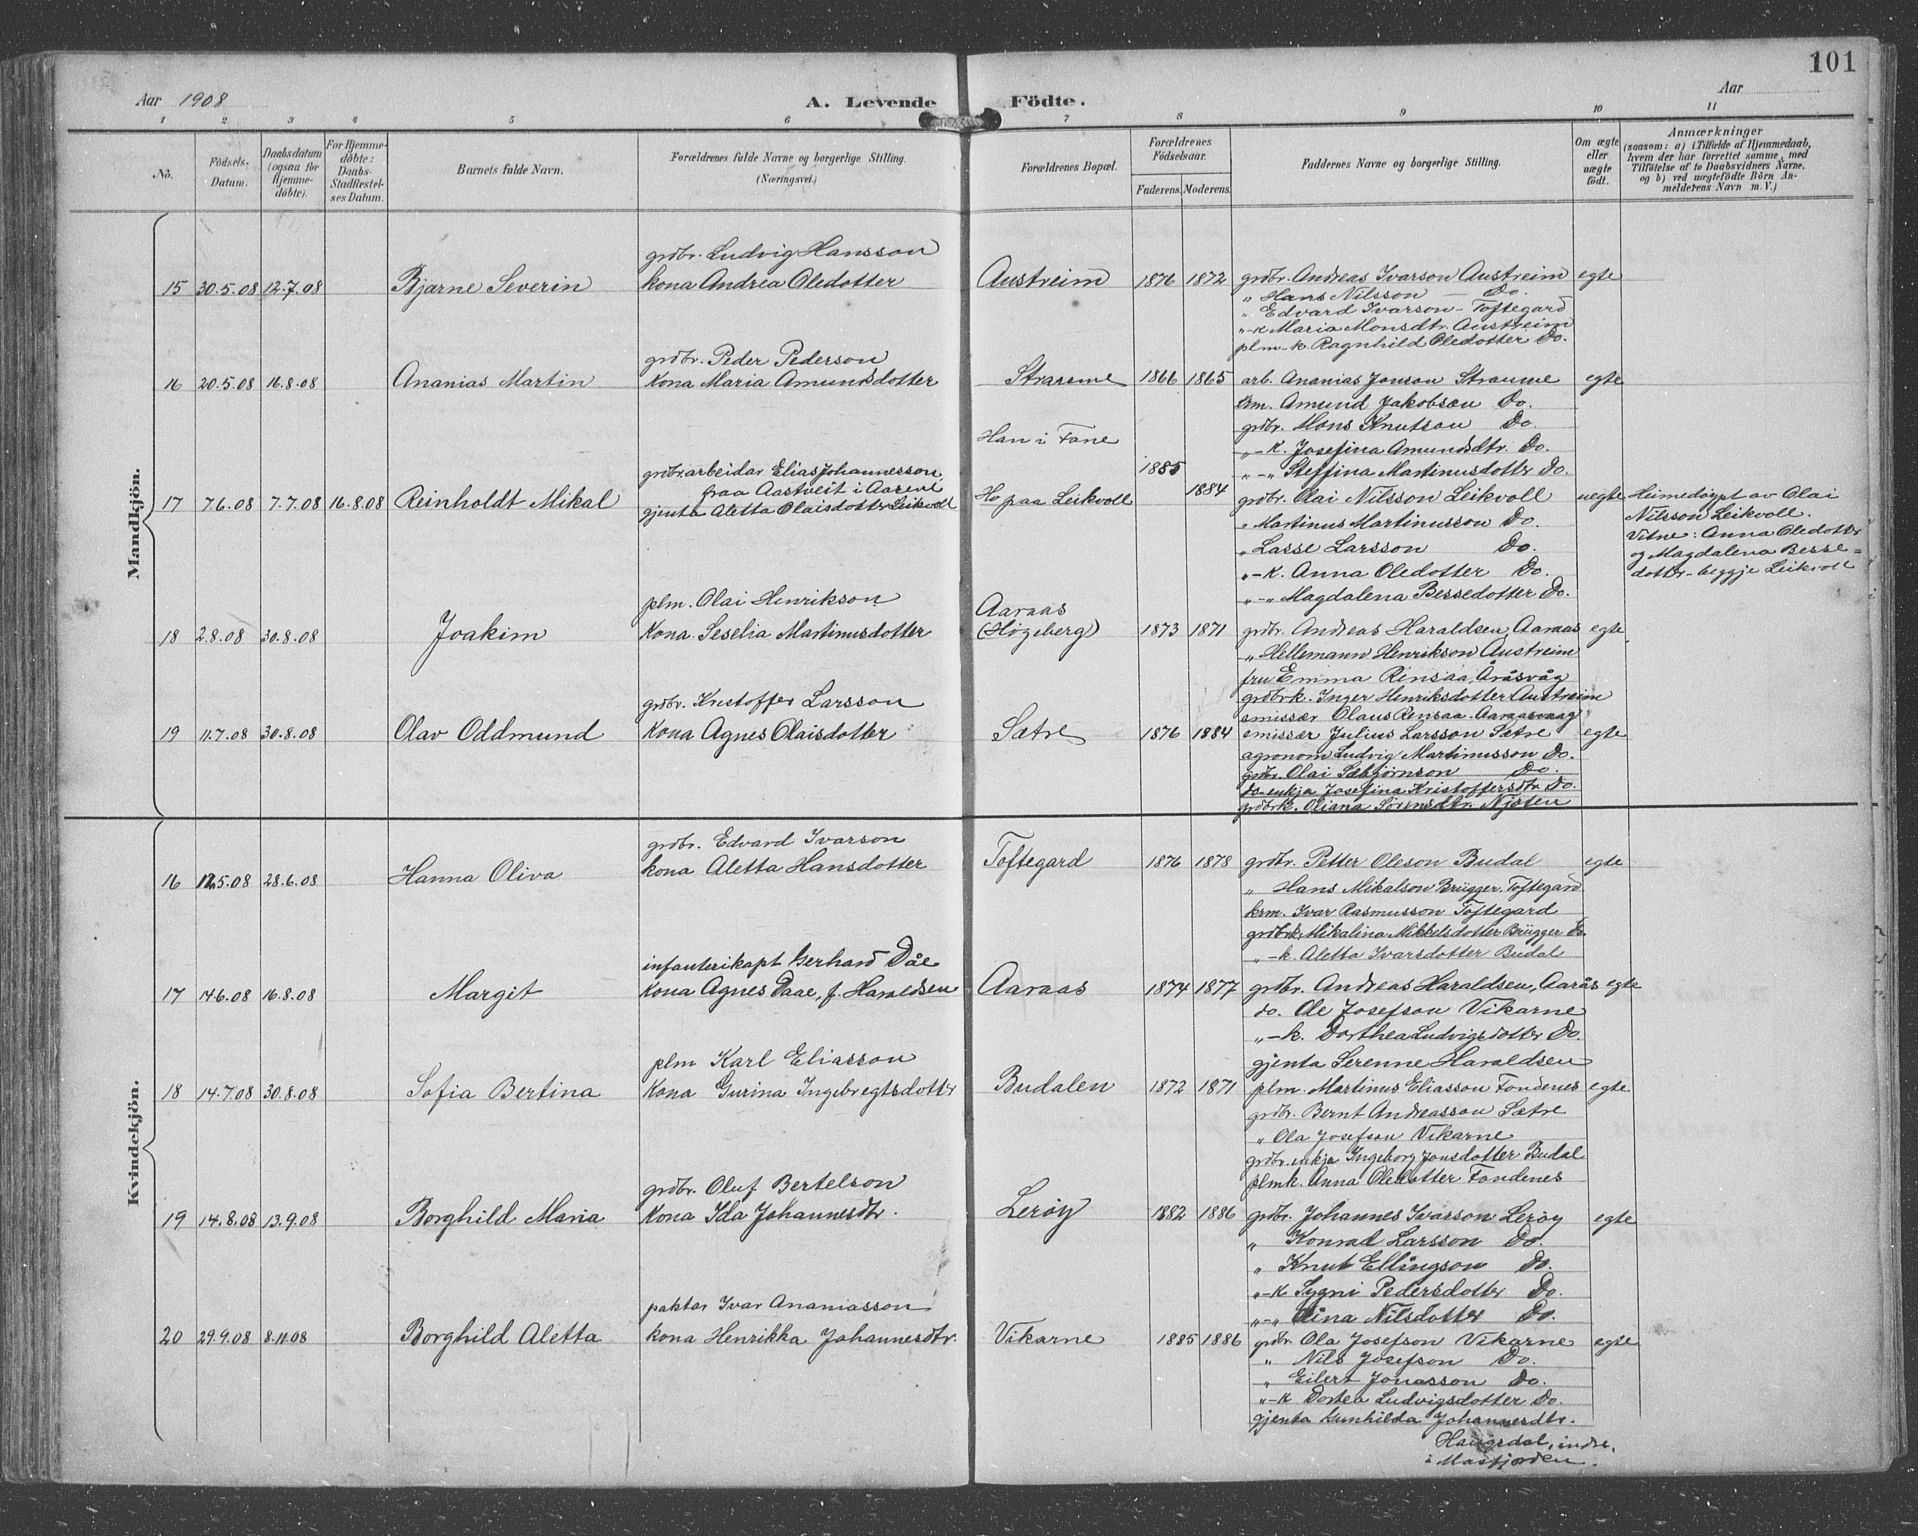 101
Aar 1908
A. Levende Födte.
Aar
1 2 3 4 5 6 7 8 9 10 11
No.
Födsels-Datum.
Daabsdatum (ogsaa for Hjemme-döbte).
For Hjemme-döbte: Daabs-Stadfæstel-ses Datum.
Barnets fulde Navn.
Forældrenes fulde Navne og borgerlige Stilling.
(Næringsvei.)
Forældrenes Bopæl.
Forældrenes Födselsaar.
Faderens. Moderens.
Faddernes Navne og borgerlige Stilling.
Om ægte eller uægte födt.
Anmærkninger
(saasom: a) i Tilfælde af Hjemmedaab,
hvem der har forrettet samme, med
Tilföielse af to Daabsvidners Navne,
og b) ved uægtefödte Börn An-
melderens Navn m. V.)
Mandkjön.
grdbr. Ludvig Hansson
15 30.5.08 12.7.08 Bjarne Severin kona Andrea Oledotter Austreim 1876 1872 grdbr. Andreas Ivarson Austreim egte
„ Hans Nilsson — Do.
„ Edvard Ivarson - Toftegard
„-k Maria Monsdtr. Austreim
plm-k. Ragnhild Oledotter Do.
grdbr. Peder Pederson
16 20.5.08 16.8.08 Ananias Martin kona Maria Amundsdotter Straume 1866 1865 arb. Ananias Jonson Straume egte
krm. Amund Jakobsen Do.
grdbr. Mons Knutson Do.
„-k. Josefina Amundsdtr. Do.
„-„ Steffina Martinusdotter Do.
Han i Fane
1885
grdbr.arbeidar Elias Johannesson
fraa Aastveit i Aasene
17 7.6.08 7.7.08 16.8.08 Reinholdt Mikal gjenta Aletta Olaisdotter Leikvoll Ho paa Leikvoll 1884 grdbr. Olai Nilsson Leikvoll uegte Heimedøypt av Olai
Nilsson Leikvoll.
Vitne: Anna Oledotter
og Magdalena Besse-
dotter - beggje Leikvoll
„ Martinus Martinusson Do.
„ Lasse Larsson Do.
„-k. Anna Oledotter Do.
„-„ Magdalena Bessedotter Do.
plm. Olai Henrikson
18 2.8.08 30.8.08 Joakim kona Seselia Martinusdotter Aaraas (Høgeberg) 1873 1871 grdbr. Andreas Haraldsen, Aaraas egte
„ Hellemann Henrikson Austreim
fru Emma Rensaa, Åråsvåg
grdbrk. Inger Henriksdotter Austreim
emissær Olaus Rensaa. Aaraasvaag
grdbr. Kristoffer Larsson
19 11.7.08 30.8.08 Olav Oddmund kona Agnes Olaisdotter Sætre 1876 1884 emissær Julius Larsson Sætre egte
agronom Ludvig Martinusson Do.
grdbr. Olai Sæbjørnson Do.
do-enkja Josefina Kristoffersdtr. Do.
grdbrk. Oliana Sörensdtr. Njøten
Kvindekjön.
grdbr. Edvard Ivarson
16 12.5.08 28.6.08 Hanna Oliva kona Aletta Hansdotter Toftegard 1876 1878 grdbr. Petter Oleson Budal egte
„ Hans Mikalson Brügger. Toftegard
krm. Ivar Rasmusson Toftegard
grdbrk. Mikalina Mikkelsdotter Brügger Do.
„-k. Aletta Ivarsdotter Budal
infanterikapt Gerhard Dåe
17 14.6.08 16.8.08 Margit kona Agnes Daae, f. Haraldsen Aaraas 1874 1877 grdbr. Andreas Haraldsen, Aarås egte
do. Ole Josefson Vikarne
„-k. Dorthea Ludvigsdotter Do.
gjenta Serenne Haraldsen
plm Karl Eliasson
18 14.7.08 30.8.08 Sofia Bertina kona Gurina Ingebregtsdotter Budalen 1872 1871 plm. Martinus Eliasson Fondenes egte
grdbr. Bernt Andreasson Sætre
„ Ola Josefson Vikarne
grdbr.enkja Ingeborg Jonsdotter Budal
plmk. Anna Oledotter Fondenes
grdbr. Oluf Bertelson
19 14.8.08 13.9.08 Borghild Maria kona Ida Johannesdtr. Lerøy 1882 1886 grdbr. Johannes Ivarsson Lerøy egte
„ Konrad Larsson Do.
„ Knut Ellingson Do.
„-k Sygni Pedersdotter Do.
„-„ Lina Nilsdotter Do.
paktar Ivar Ananiasson
20 29.9.08 8.11.08 Borghild Aletta kona Henrikka Johannesdtr. Vikarne 1885 1886 grdbr. Ola Josefson Vikarne egte
„ Nils Josefson Do.
„ Eilert Jonasson Do.
„-k Dortea Ludvigsdotter Do.
gjenta Gunhilda Johannesdtr.
Haugsdal, indre,
i Masfjorden.